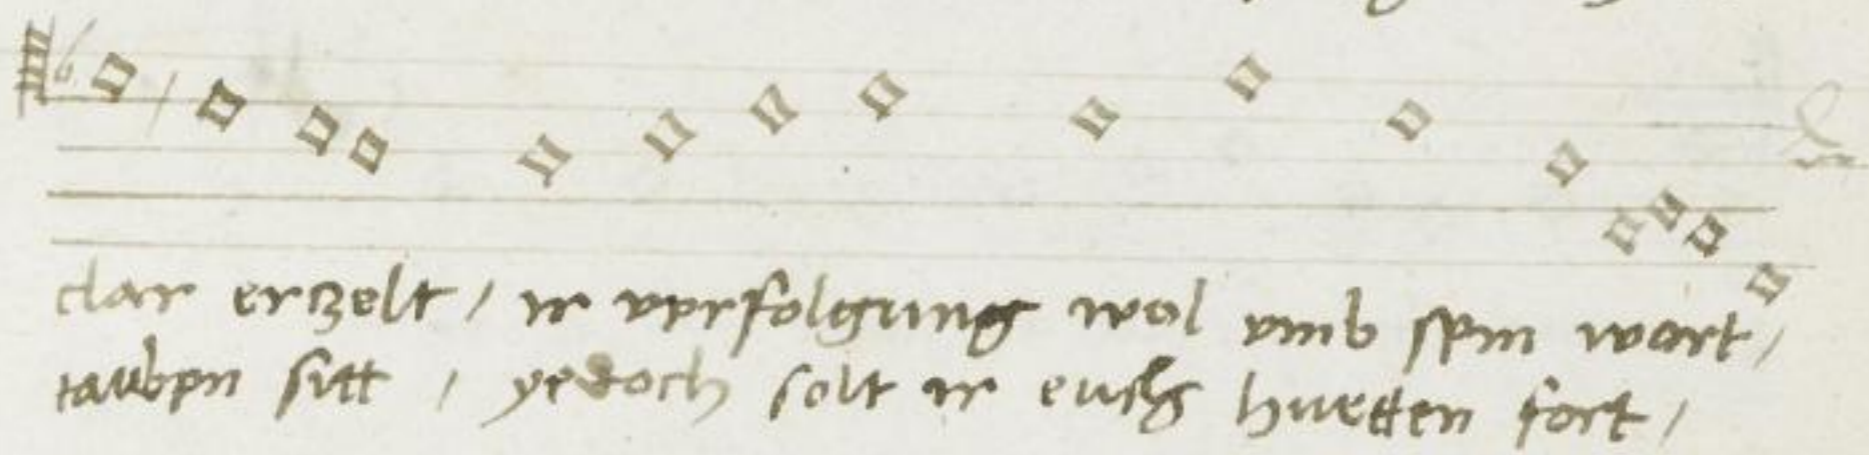 clar erzelt / ir verfolgung wol umb sein wort /
tauben sitt / yedoch solt ir euch huetten fort /